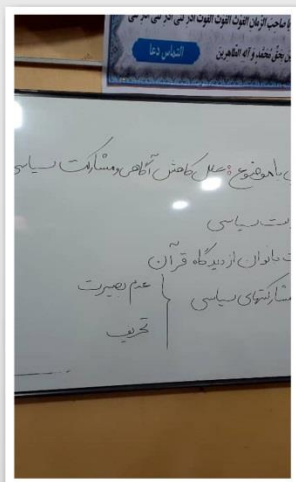 یا صاحِبَ الزمان الغوث الغوث الغوث
بحق محمد و آله الطاهرین
التماس دعا
با موضوع: علل کاهش آگاهی و مشارکت سیاسی
سیاسی
بانوان از دیدگاه قرآن
مشارکتهای سیاسی
عدم بصیرت
تحریف